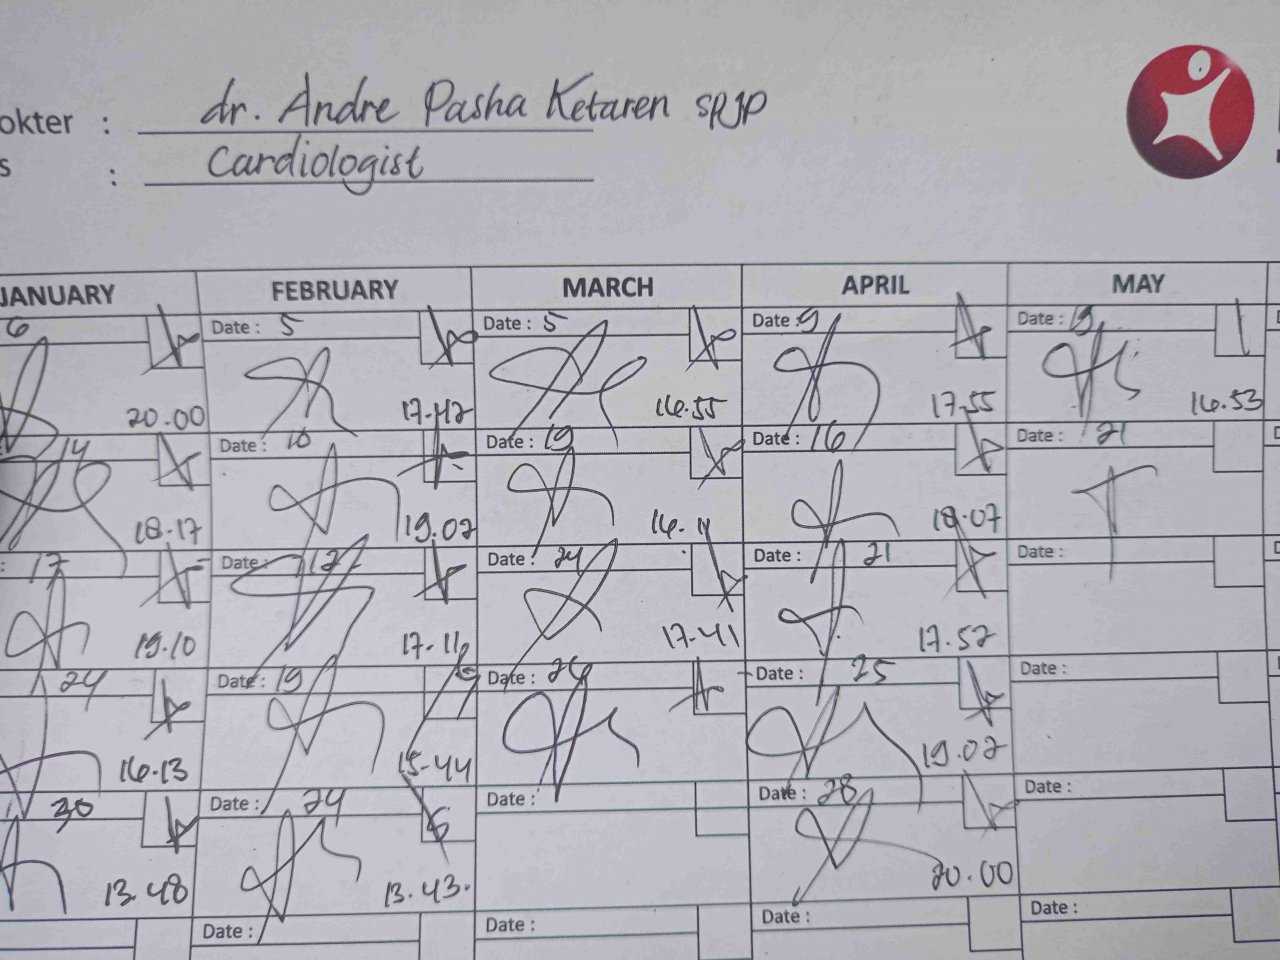 okter : dr. Andre Pasha Ketaren SpJP
s : Cardiologist
JANUARY FEBRUARY MARCH APRIL MAY
6 Date : 5 Date : 5 Date : 9 Date :
20.00 17.42 16.55 17.55 16.53
14 Date : 10 Date : 19 Date : 16 Date : 21
18.17 19.02 16.11 18.07
: 17 Date : 12 Date : 24 Date : 21 Date :
19.10 17.16 17.41 17.52
24 Date : 19 Date : 26 Date : 25 Date :
16.13 15.44 19.02
30 Date : 24 Date : Date : 28 Date :
13.48 13.43. 20.00
Date : Date : Date : Date :